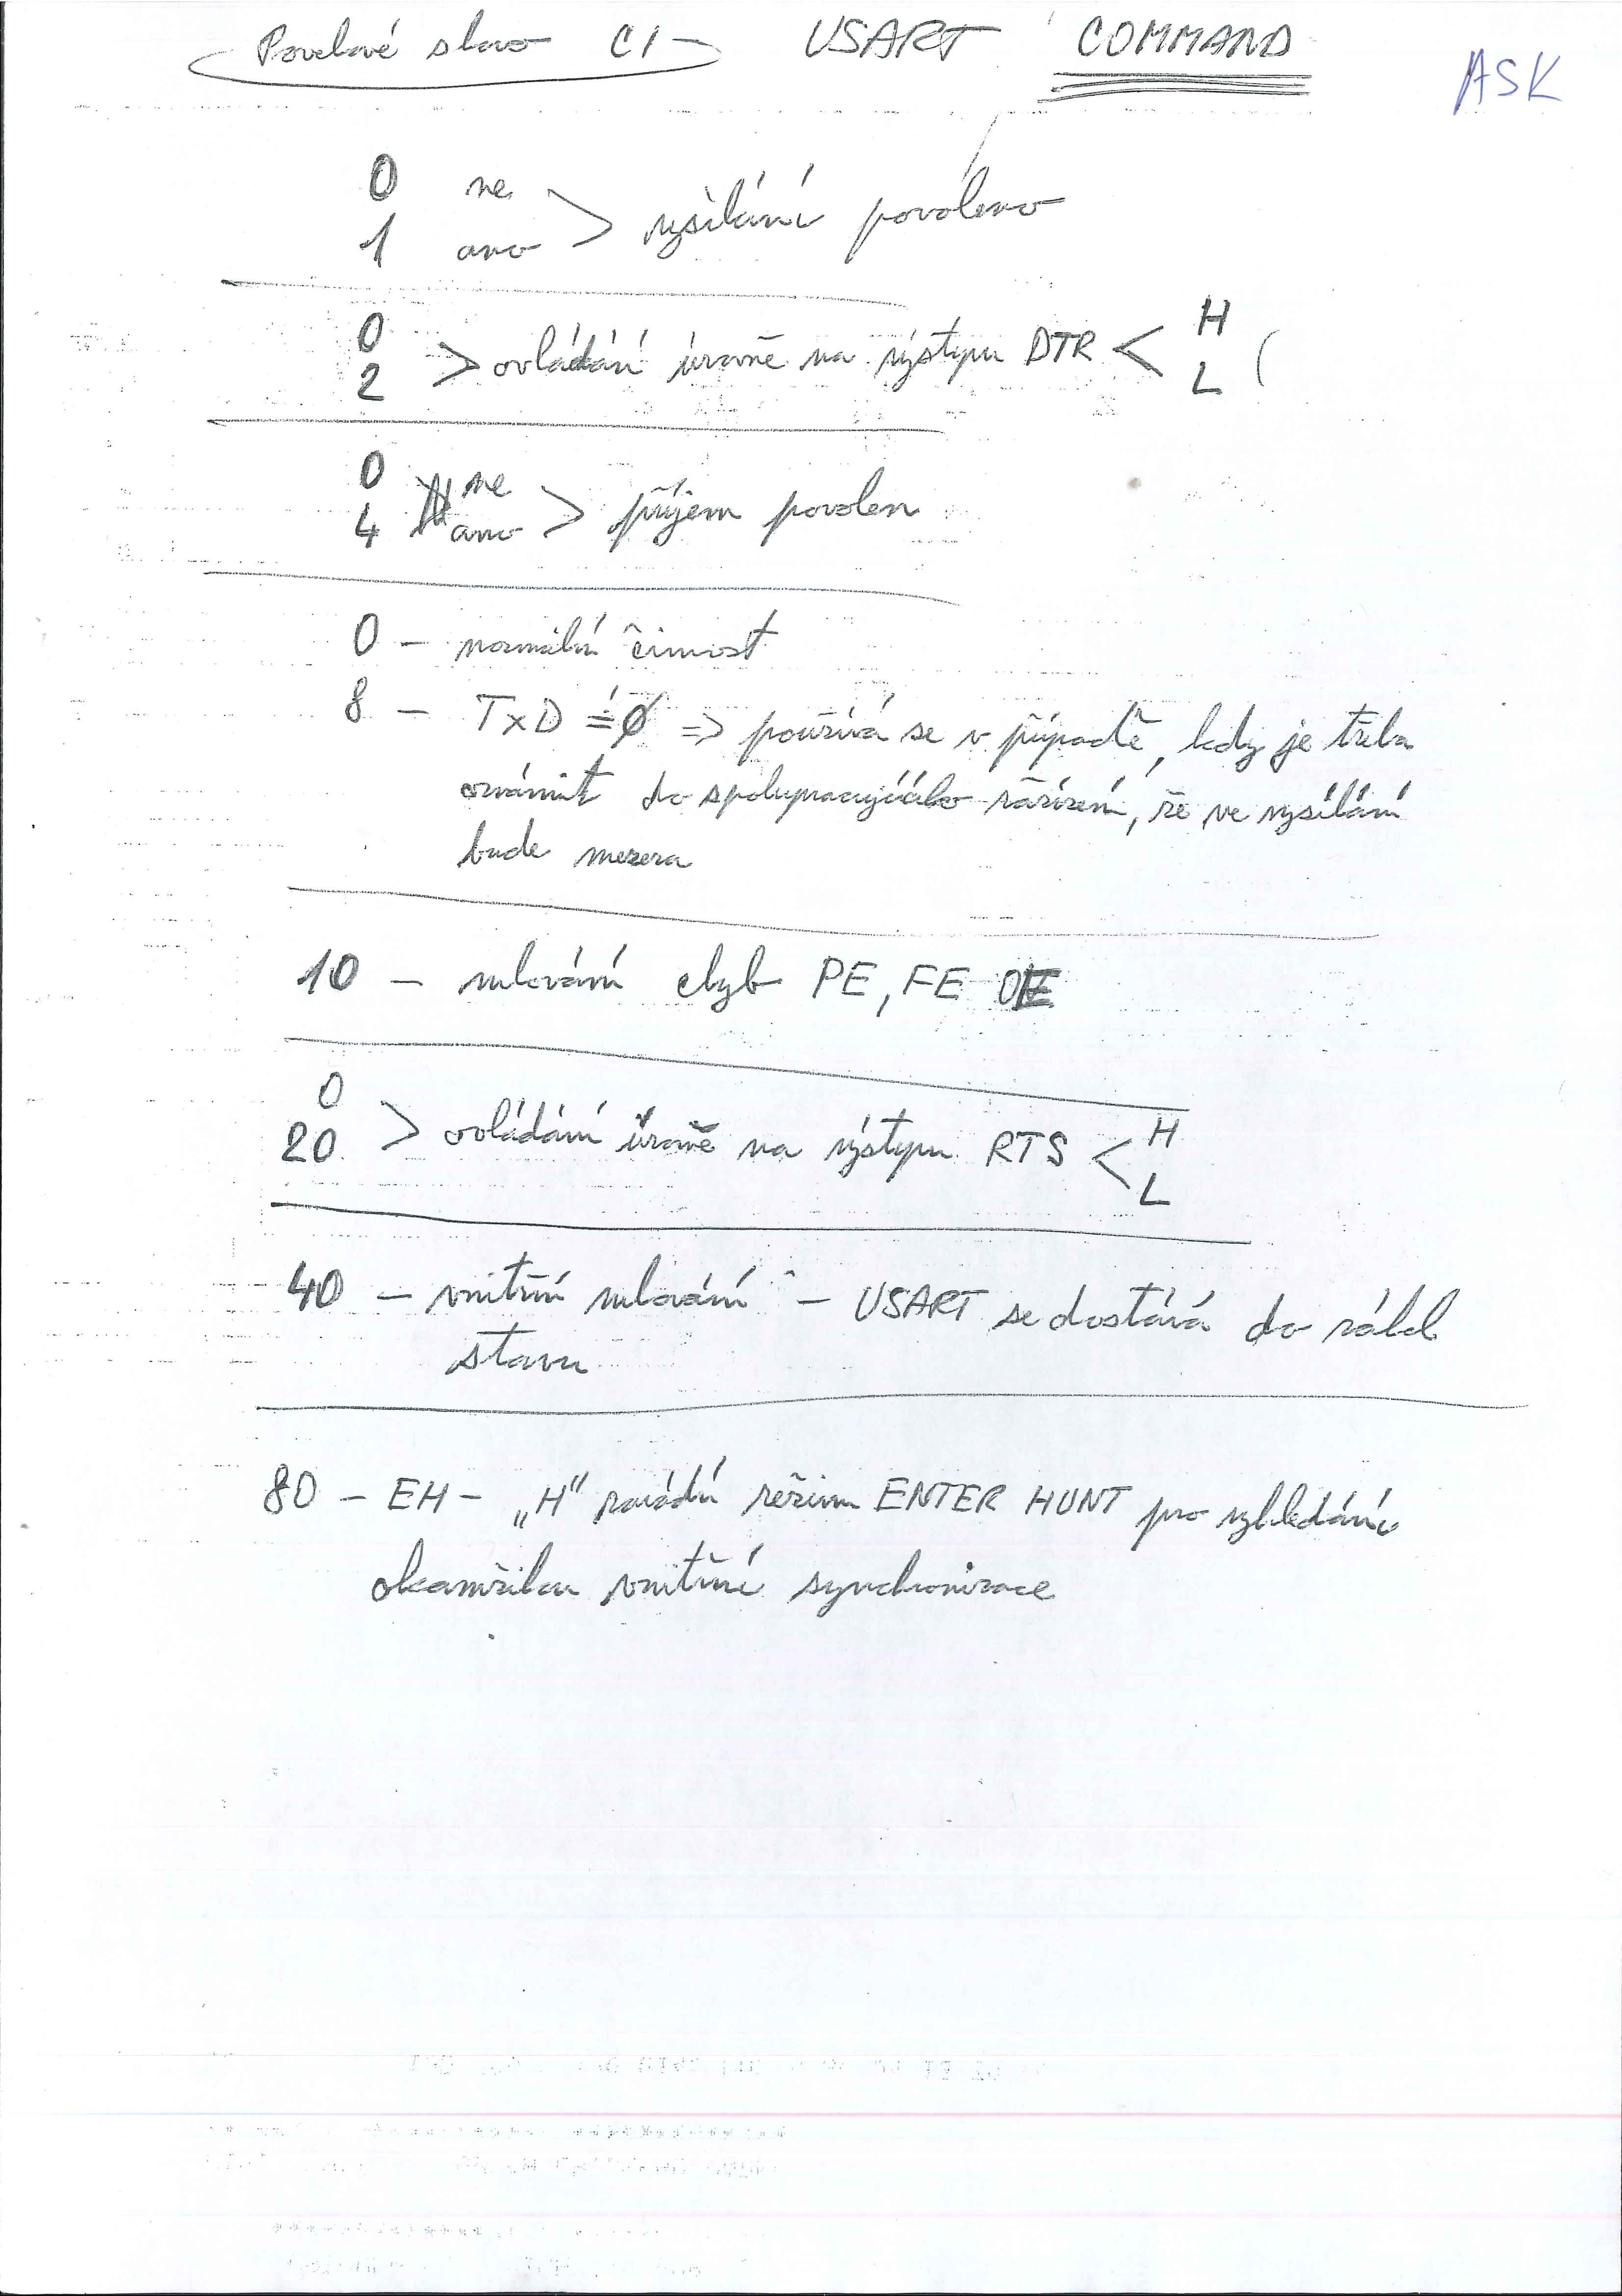 Povelové slovo CI - USART COMMAND
ASK
0 ne
1 ano > vysílání povoleno
0 H
2 > ovládání úrovně na výstupu DTR < L (
0 ne
4 ano > příjem povolen
0 - normální činnost
8 - TxD = Ø => používá se v případě, kdy je třeba
oznámit do spolupracujícího zařízení, že ve vysílání
bude mezera
10 - nulování chyb PE, FE OE
0
20 > ovládání úrovně na výstupu RTS < H
L
40 - vnitřní nulování - USART se dostává do zákl
stavu
80 - EH - „H" zavádí režim ENTER HUNT pro vyhledání
okamžiku vnitřní synchronizace